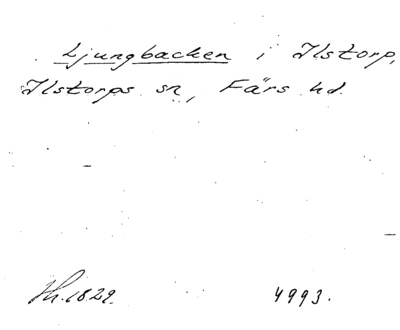 Ljungbacken i Ilstorp,
Ilstorps sn, Färs hd.
Hh. 1829. 4993.